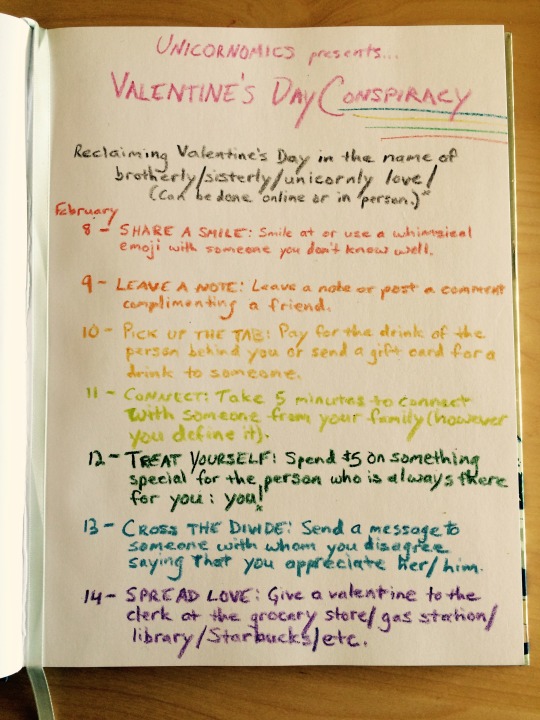 UNICORNOMICS presents...
VALENTINE'S DAY CONSPIRACY
Reclaiming Valentine's Day in the name of
brotherly/sisterly/unicornly love!
(Can be done online or in person.)*
February
8 - SHARE A SMILE: Smile at or use a whimsical
emoji with someone you don't know well.
9 - LEAVE A NOTE: Leave a note or post a comment
complimenting a friend.
10 - PICK UP THE TAB: Pay for the drink of the
person behind you or send a gift card for a
drink to someone.
11 - CONNECT: Take 5 minutes to connect
with someone from your family (however
you define it).
12 - TREAT YOURSELF: Spend $5 on something
special for the person who is always there
for you: you!
13 - CROSS THE DIVIDE: Send a message to
someone with whom you disagree
saying that you appreciate her/him.
14 - SPREAD LOVE: Give a valentine to the
clerk at the grocery store/gas station/
library/Starbucks/etc.